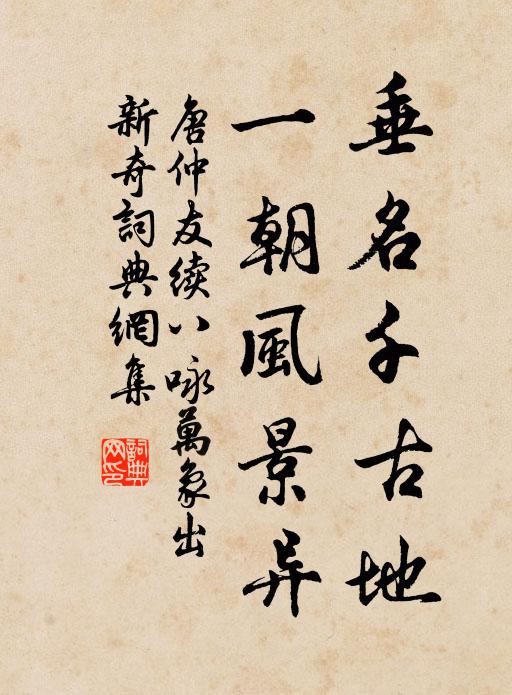 垂名千古地
一朝風景异
唐仲友續八咏萬象出
新奇詞典網集
詞典
网印